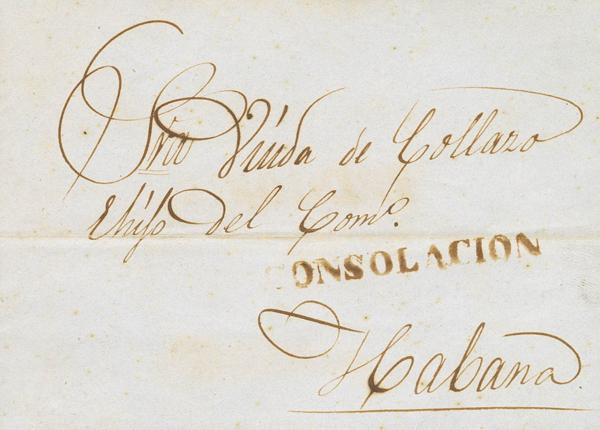 Sra Viuda de Collazo
é hijo del Com.o
CONSOLACION
Habana